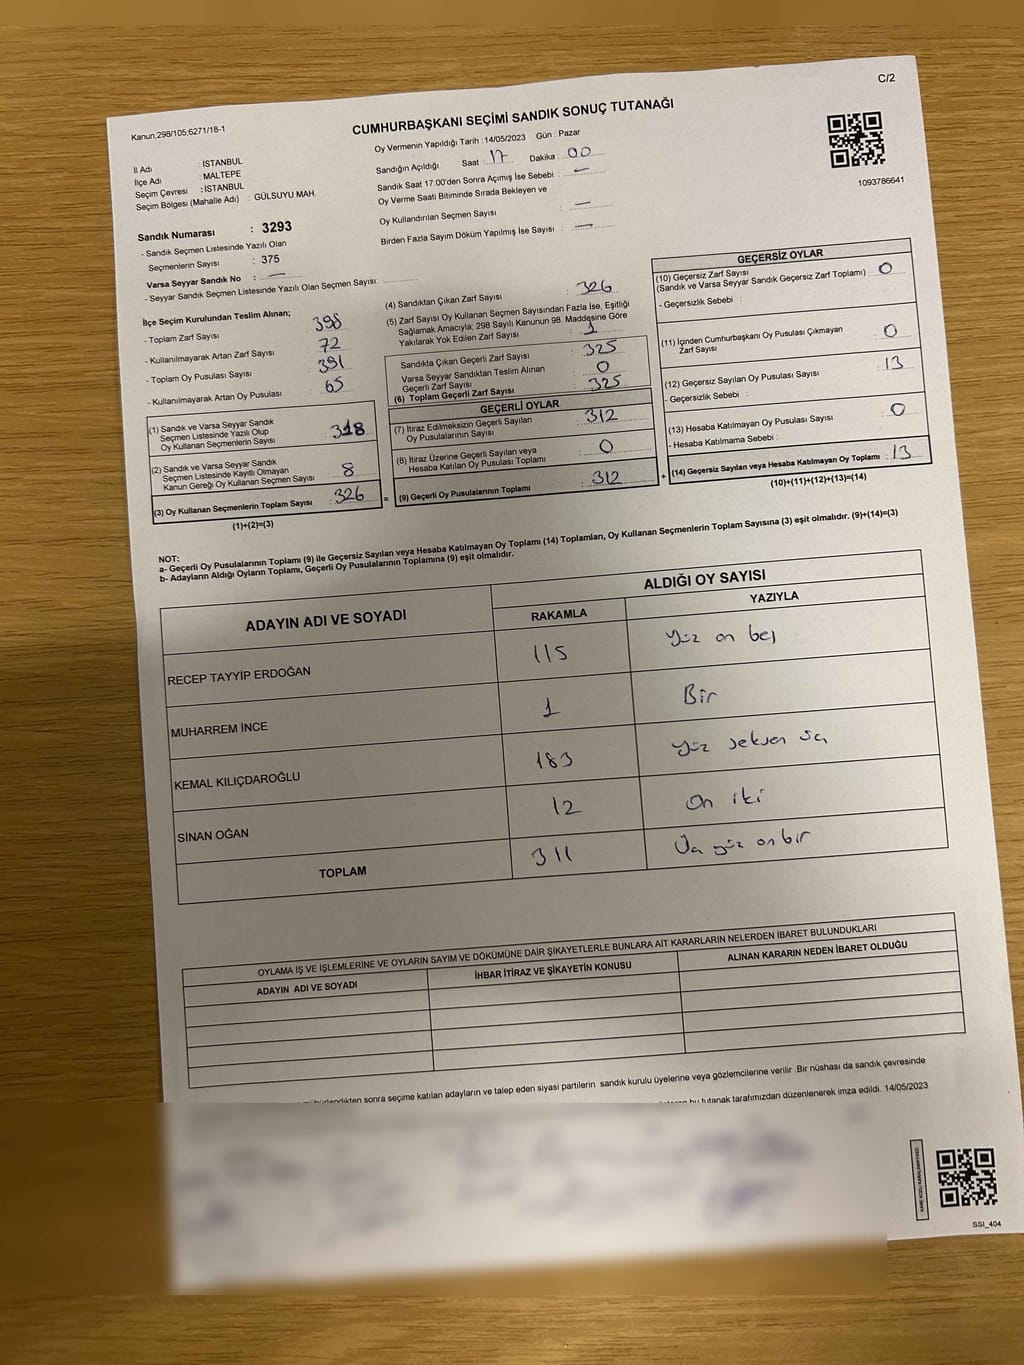 C/2
Kanun;298/105,6271/18-1
CUMHURBAŞKANI SEÇİMİ SANDIK SONUÇ TUTANAĞI
1093786641
İl Adı : ISTANBUL
İlçe Adı : MALTEPE
Seçim Çevresi : ISTANBUL
Seçim Bölgesi (Mahalle Adı) : GÜLSUYU MAH.
Sandık Numarası : 3293
- Sandık Seçmen Listesinde Yazılı Olan
Seçmenlerin Sayısı : 375
Varsa Seyyar Sandık No : —
- Seyyar Sandık Seçmen Listesinde Yazılı Olan Seçmen Sayısı:
Oy Vermenin Yapıldığı Tarih : 14/05/2023 Gün : Pazar
Sandığın Açıldığı Saat : 17 Dakika : 00
Sandık Saat 17.00'den Sonra Açımış İse Sebebi : —
Oy Verme Saati Bitiminde Sırada Bekleyen ve
Oy Kullandırılan Seçmen Sayısı : —
Birden Fazla Sayım Döküm Yapılmış İse Sayısı : —
İlçe Seçim Kurulundan Teslim Alınan;
- Toplam Zarf Sayısı : 398
- Kullanılmayarak Artan Zarf Sayısı : 72
- Toplam Oy Pusulası Sayısı : 391
- Kullanılmayarak Artan Oy Pusulası : 65
(1) Sandık ve Varsa Seyyar Sandık
Seçmen Listesinde Yazılı Olup
Oy Kullanan Seçmenlerin Sayısı : 318
(2) Sandık ve Varsa Seyyar Sandık
Seçmen Listesinde Kayıtlı Olmayan
Kanun Gereği Oy Kullanan Seçmen Sayısı : 8
(3) Oy Kullanan Seçmenlerin Toplam Sayısı : 326
(1)+(2)=(3)
(4) Sandıktan Çıkan Zarf Sayısı : 326
(5) Zarf Sayısı Oy Kullanan Seçmen Sayısından Fazla İse, Eşitliği
Sağlamak Amacıyla; 298 Sayılı Kanunun 98. Maddesine Göre
Yakılarak Yok Edilen Zarf Sayısı : 1
Sandıkta Çıkan Geçerli Zarf Sayısı : 325
Varsa Seyyar Sandıktan Teslim Alınan
Geçerli Zarf Sayısı : 0
(6) Toplam Geçerli Zarf Sayısı : 325
GEÇERLİ OYLAR
(7) İtiraz Edilmeksizin Geçerli Sayılan
Oy Pusulalarının Sayısı : 312
(8) İtiraz Üzerine Geçerli Sayılan veya
Hesaba Katılan Oy Pusulası Toplamı : 0
= (9) Geçerli Oy Pusulalarının Toplamı : 312
GEÇERSİZ OYLAR
(10) Geçersiz Zarf Sayısı
(Sandık ve Varsa Seyyar Sandık Geçersiz Zarf Toplamı) : 0
- Geçersizlik Sebebi :
(11) İçinden Cumhurbaşkanı Oy Pusulası Çıkmayan
Zarf Sayısı : 0
(12) Geçersiz Sayılan Oy Pusulası Sayısı : 13
- Geçersizlik Sebebi :
(13) Hesaba Katılmayan Oy Pusulası Sayısı : 0
- Hesaba Katılmama Sebebi :
+ (14) Geçersiz Sayılan veya Hesaba Katılmayan Oy Toplamı : 13
(10)+(11)+(12)+(13)=(14)
NOT:
a- Geçerli Oy Pusulalarının Toplamı (9) ile Geçersiz Sayılan veya Hesaba Katılmayan Oy Toplamı (14) Toplamları, Oy Kullanan Seçmenlerin Toplam Sayısına (3) eşit olmalıdır. (9)+(14)=(3)
b- Adayların Aldığı Oyların Toplamı, Geçerli Oy Pusulalarının Toplamına (9) eşit olmalıdır.
ADAYIN ADI VE SOYADI
ALDIĞI OY SAYISI
RAKAMLA YAZIYLA
RECEP TAYYİP ERDOĞAN 115 Yüz on beş
MUHARREM İNCE 1 Bir
KEMAL KILIÇDAROĞLU 183 Yüz seksen üç
SİNAN OĞAN 12 On iki
TOPLAM 311 Üç yüz on bir
OYLAMA İŞ VE İŞLEMLERİNE VE OYLARIN SAYIM VE DÖKÜMÜNE DAİR ŞİKAYETLERLE BUNLARA AİT KARARLARIN NELERDEN İBARET BULUNDUKLARI
ADAYIN ADI VE SOYADI İHBAR İTİRAZ VE ŞİKAYETİN KONUSU ALINAN KARARIN NEDEN İBARET OLDUĞU
sonra seçime katılan adayların ve talep eden siyasi partilerin sandık kurulu üyelerine veya gözlemcilerine verilir. Bir nüshası da sandık çevresinde
bu tutanak tarafımızdan düzenlenerek imza edildi. 14/05/2023
SSI_404